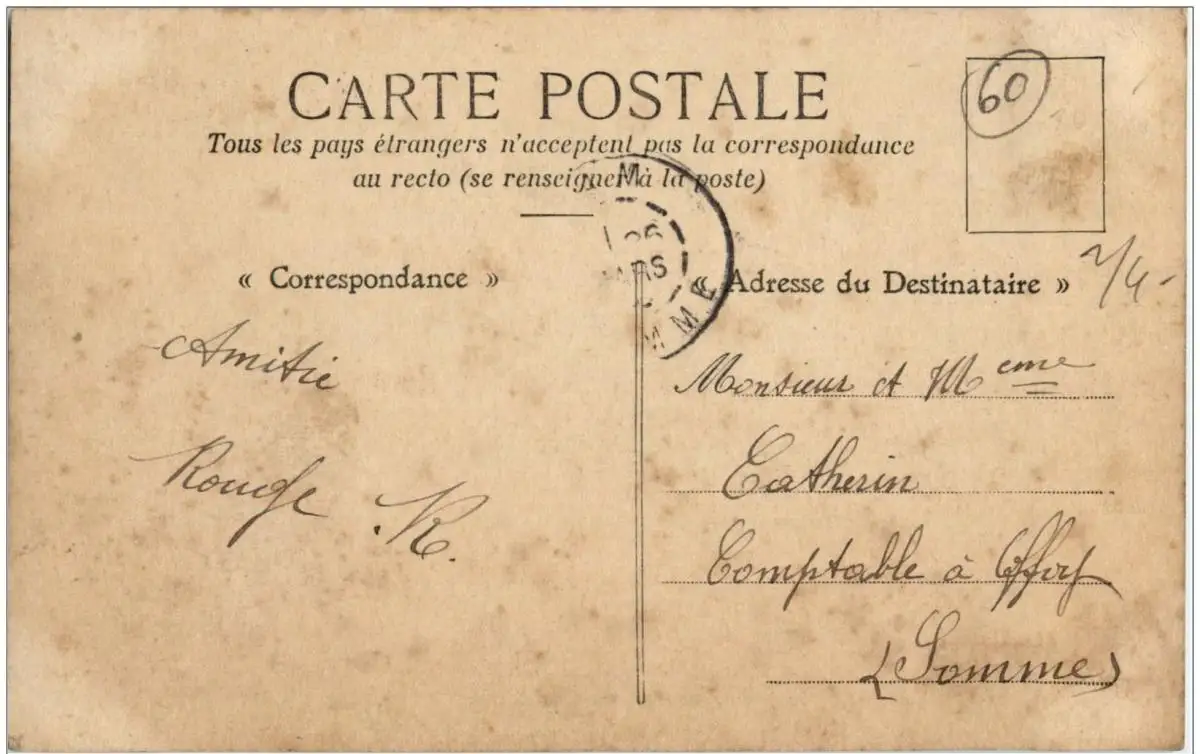 CARTE POSTALE
Tous les pays étrangers n'acceptent pas la correspondance
au recto (se renseigner à la poste)
60
« Correspondance »
« Adresse du Destinataire »
Amitié
Rouge R.
Monsieur et Meme
Catherin
Comptable à Offoy
(Somme)